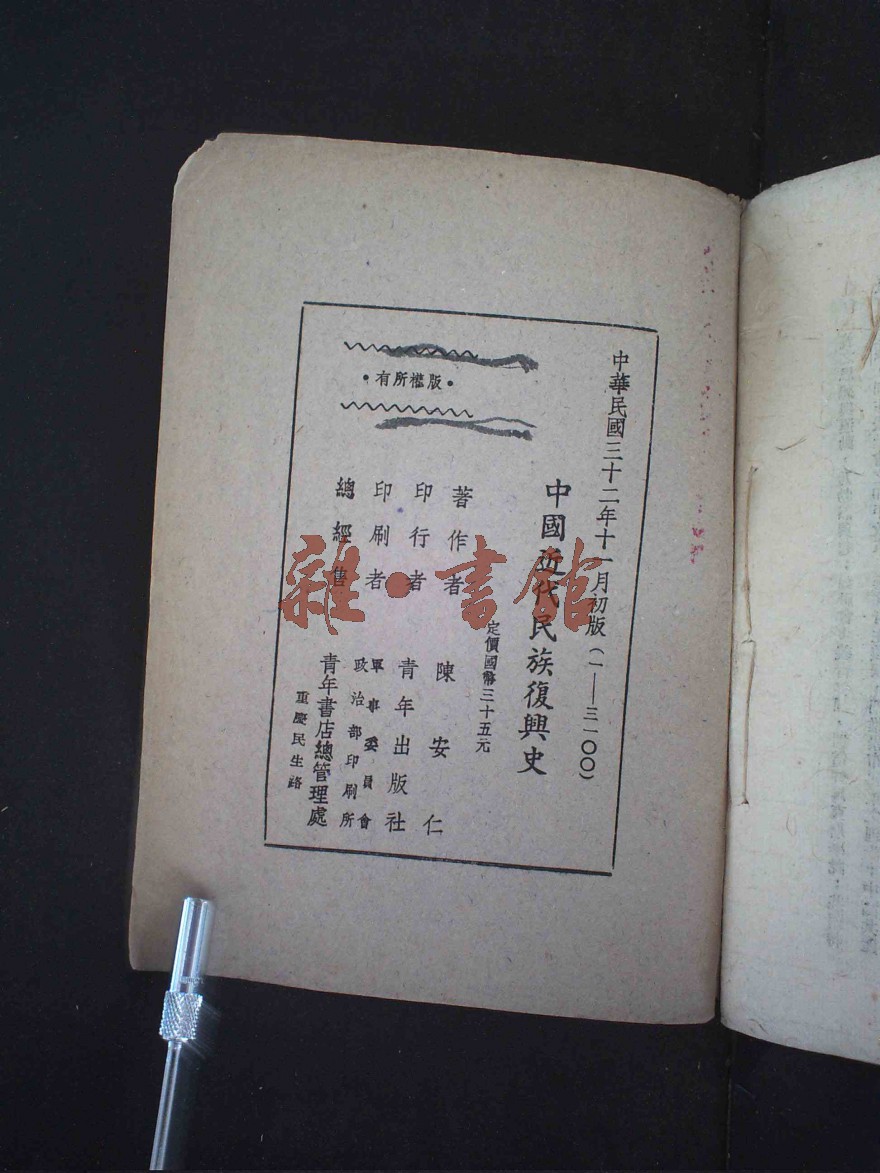 中華民國三十二年十一月初版(一——三一〇〇)
中國近代民族復興史
定價國幣三十五元
著作者 陳安仁
印行者 青年出版社
印刷者 軍事委員會政治部印刷所
總經售 青年書店總管理處
重慶民生路
•有所權版•
雜•書館